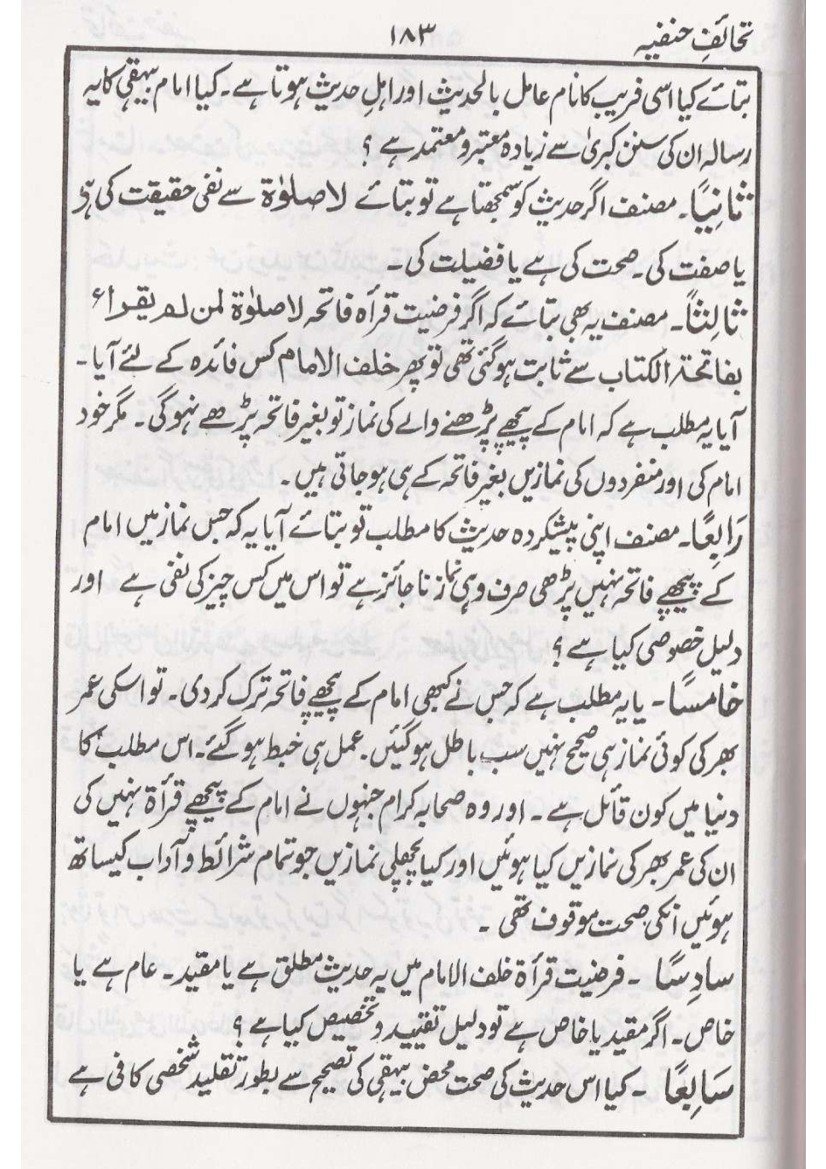 تحائفِ حنفیہ
۱۸۳
بتائے کیا اسی فریب کا نام عامل بالحدیث اور اہلِ حدیث ہوتا ہے۔ کیا امام بیہقی کا یہ
رسالہ ان کی سنن کبریٰ سے زیادہ معتبر و معتمد ہے ؟
ثانیًا۔ مصنف اگر حدیث کو سمجھتا ہے تو بتائے لاصلوٰۃ سے نفی حقیقت کی ہی
یا صفت کی۔ صحت کی ہے یا فضیلت کی۔
ثالثاً۔ مصنف یہ بھی بتائے کہ اگر فرضیت قرأہ فاتحہ لاصلوٰۃ لمن لم یقراء
بفاتحۃ الکتاب سے ثابت ہوگئی تھی تو پھر خلف الامام کس فائدہ کے لئے آیا۔
آیا یہ مطلب ہے کہ امام کے پیچھے پڑھنے والے کی نماز تو بغیر فاتحہ پڑھے نہوگی۔ مگر خود
امام کی اور منفردوں کی نمازیں بغیر فاتحہ کے ہی ہوجاتی ہیں۔
رَابعًا۔ مصنف اپنی پیشکردہ حدیث کا مطلب تو بتائے آیا یہ کہ جس نماز میں امام
کے پیچھے فاتحہ نہیں پڑھی صرف وہی نماز ناجائز ہے تو اس میں کس چیز کی نفی ہے اور
دلیل خصوصی کیا ہے ؟
خامسًا۔ یا یہ مطلب ہے کہ جس نے کبھی امام کے پیچھے فاتحہ ترک کر دی۔ تو اسکی عمر
بھر کی کوئی نماز ہی صحیح نہیں سب باطل ہوگئیں۔ عمل ہی خبط ہوگئے۔ اس مطلب کا
دنیا میں کون قائل ہے۔ اور وہ صحابہ کرام جنہوں نے امام کے پیچھے قرأۃ نہیں کی
ان کی عمر بھر کی نمازیں کیا ہوئیں اور کیا پچھلی نمازیں جو تمام شرائط و آداب کیساتھ
ہوئیں انکی صحت موقوف تھی ۔
سادِسًا ۔ فرضیت قرأۃ خلف الامام میں یہ حدیث مطلق ہے یا مقید۔ عام ہے یا
خاص۔ اگر مقید یا خاص ہے تو دلیل تقیید و تخصیص کیا ہے ؟
سَابِعًا ۔ کیا اس حدیث کی صحت محض بیہقی کی تصحیح سے بطور تقلید شخصی کافی ہے